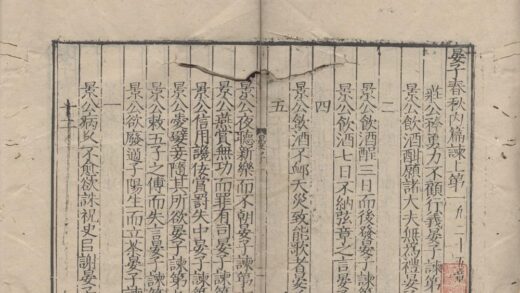 晏子春秋内篇諫上第一凡二十五章
莊公矜勇力不顧行義晏子諫第
景公飲酒酣願諸大夫無為禮晏
二
景公飲酒酲三日而後發晏子諫第
景公飲酒七日不納弦章之言晏
四
景公飲酒不卹天災致能歌者晏
五
景公夜聽新樂而不朝晏子諫第
景公燕賞無功而罪有司晏子諫
景公信用讒佞賞罰失中晏子諫第
景公愛嬖妾隨其所欲晏子諫第
景公敕五子之傅而失言晏子諫第
景公欲廢適子陽生而立荼晏子
一
景公病久不愈欲誅祝史以謝晏子
十二